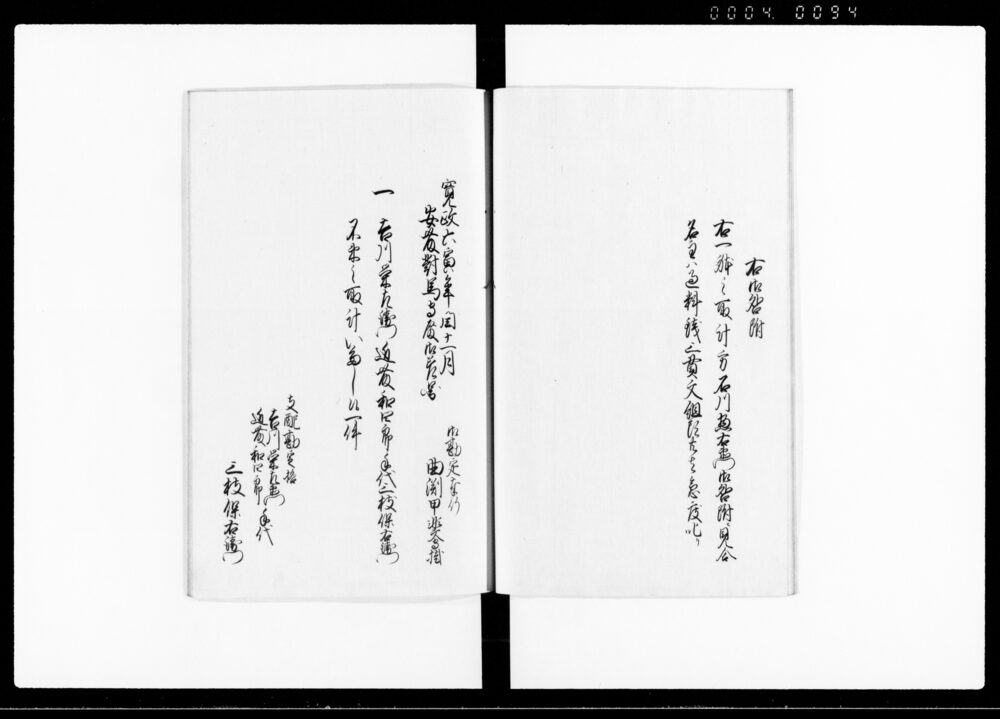 0004. 0094
右御咎附
右一躰之取計方石川惣右衛門御咎附ニ見合
名主ハ過料銭三貫文組頭共ハ急度叱り
寛政六寅年閏十一月
安藤對馬守殿御差図
御勘定奉行
曲渕甲斐守掛
一 吉川栄左衛門近藤和四郎手代三枝保右衛門
不束之取計いたし候一件
支配勘定格
吉川栄左衛門
近藤和四郎
手代
三枝保右衛門